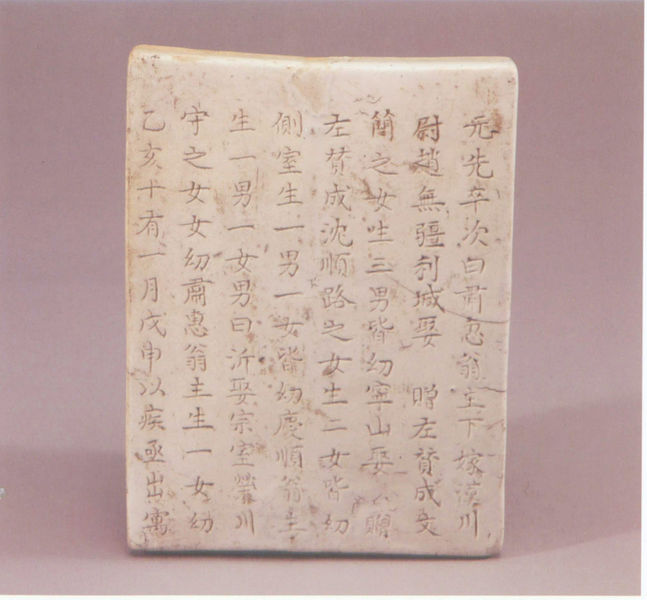 元先卒次曰肅惠翁主下嫁漢川
尉趙無疆利城娶 贈左贊成文
簡之女生三男皆幼寧山娶 贈
左贊成沈順路之女生二女皆幼
側室生一男一女皆幼慶順翁主
生一男一女男曰沂娶宗室川
守之女女幼肅惠翁主生一女幼
乙亥十有一月戊申以疾亟出寓